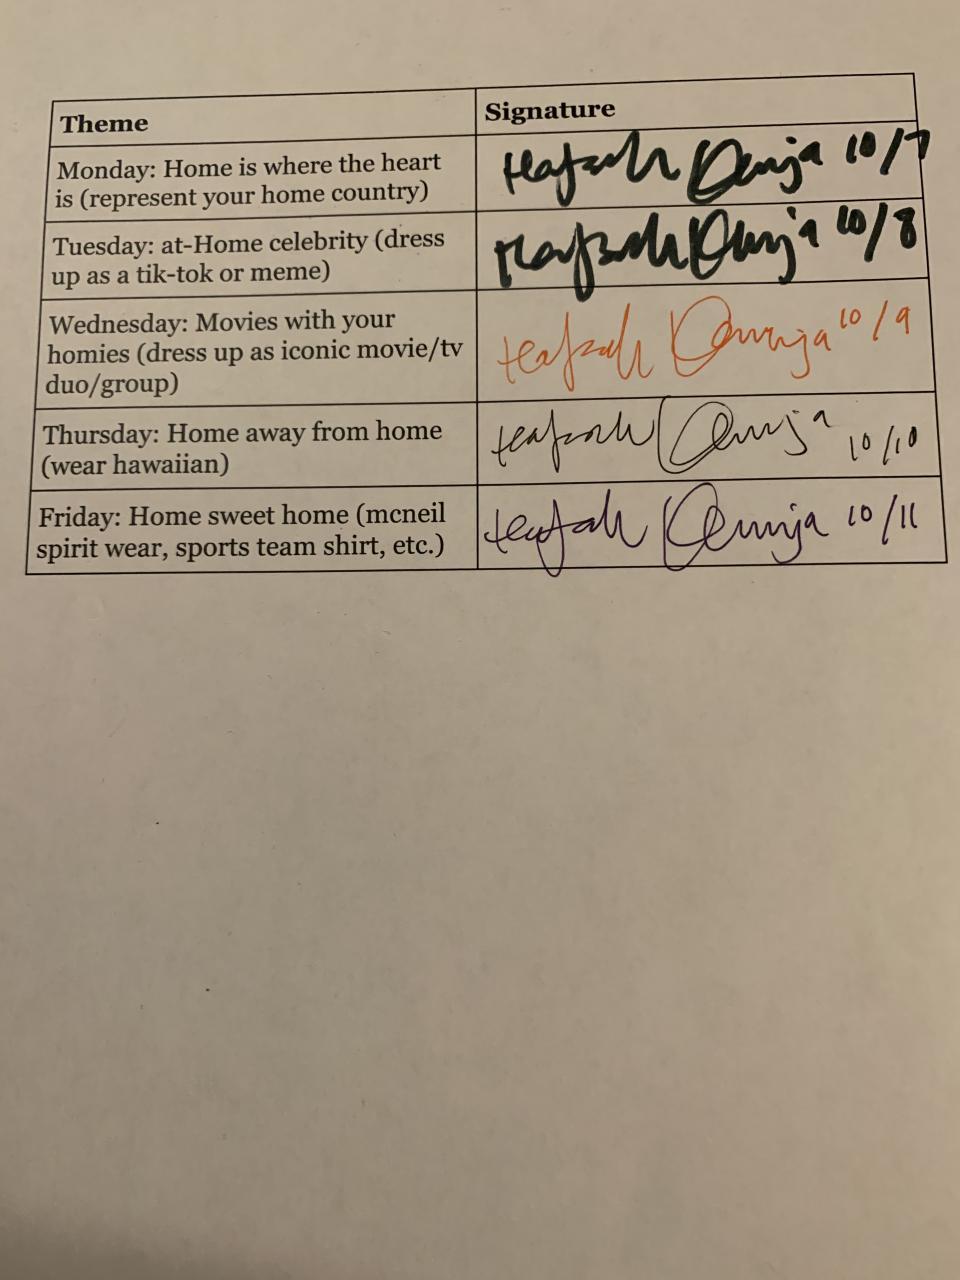 Theme
Signature
Monday: Home is where the heart
is (represent your home country)
10/7
Tuesday: at-Home celebrity (dress
up as a tik-tok or meme)
10/8
Wednesday: Movies with your
homies (dress up as iconic movie/tv
duo/group)
10/9
Thursday: Home away from home
(wear hawaiian)
10/10
Friday: Home sweet home (mcneil
spirit wear, sports team shirt, etc.)
10/11